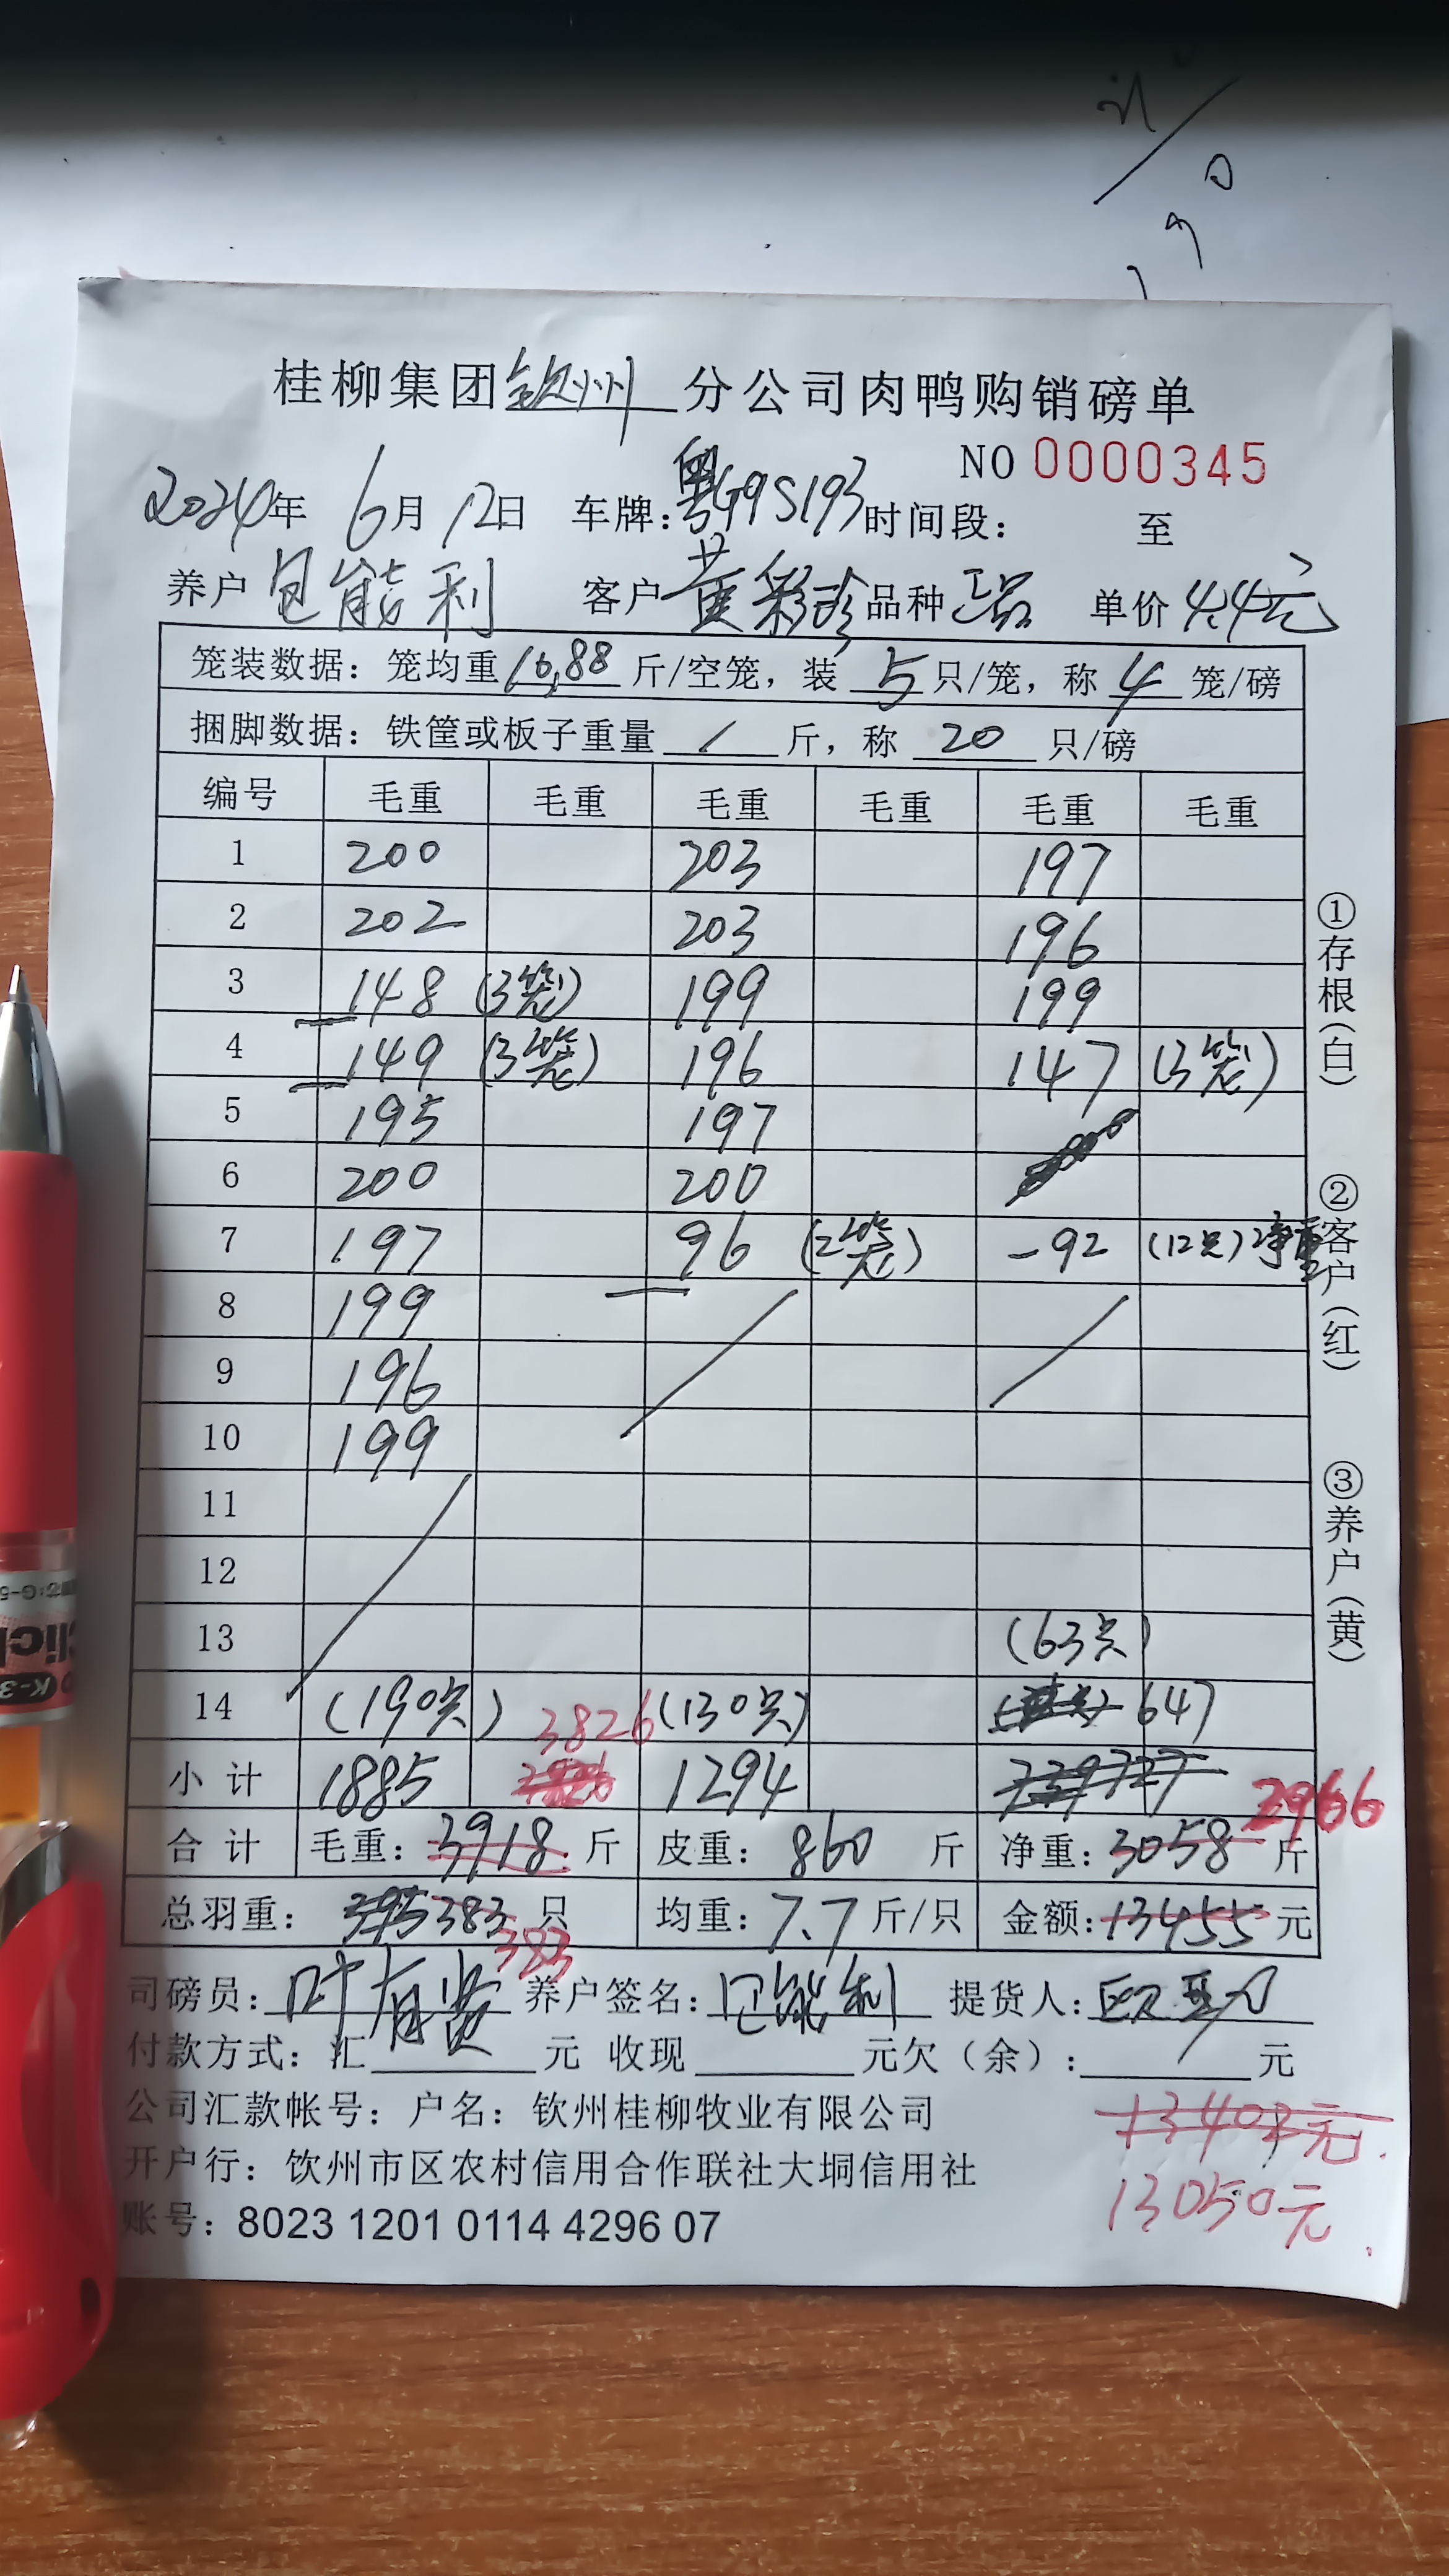 桂柳集团钦州分公司肉鸭购销磅单
NO 0000345
2024年 6月 12日 车牌:粤G9S193 时间段: 至
养户 包能利 客户 黄彩珍 品种 正品 单价 4.4元
笼装数据: 笼均重 16.88 斤/空笼, 装 5 只/笼, 称 4 笼/磅
捆脚数据: 铁筐或板子重量 / 斤, 称 20 只/磅
编号 毛重 毛重 毛重 毛重 毛重 毛重
1 200 203 197
2 202 203 196
3 148 (3笼) 199 199
4 149 (3笼) 196 147 (3笼)
5 195 197
6 200 200
7 197 96 (2笼) -92 (12只)净重
8 199
9 196
10 199
11
12
13 (63只)
14 (190只) 3826 (130只) 647
小计 1885 1294 2966
合计 毛重: 3918 斤 皮重: 860 斤 净重: 3058 斤
总羽重: 383 只 均重: 7.7 斤/只 金额: 13455 元
383
司磅员: 叶有贤 养户签名: 包能利 提货人:
付款方式: 汇 元 收现 元欠(余): 元
公司汇款帐号: 户名: 钦州桂柳牧业有限公司
13403元
开户行: 钦州市区农村信用合作联社大垌信用社
13050元
账号: 8023 1201 0114 4296 07
①存根(白)
②客户(红)
③养户(黄)